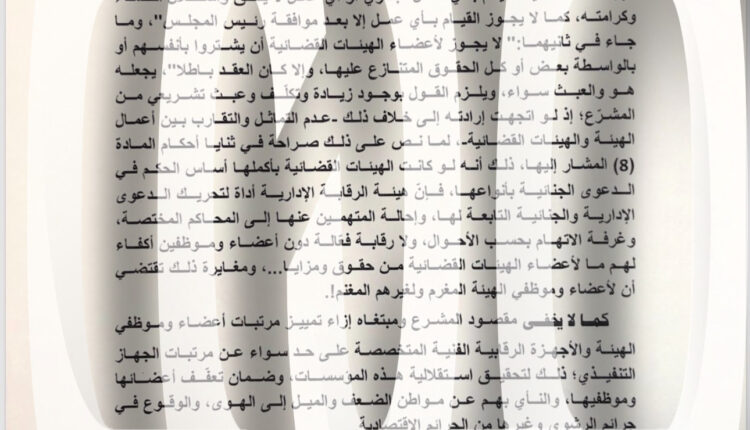 وكرامته، كما لا يجوز القيام بأي عمل إلا بعد موافقة رئيس المجلس"، وما
جاء في ثانيهما:" لا يجوز لأعضاء الهيئات القضائية أن يشتروا بأنفسهم أو
بالواسطة بعض أو كل الحقوق المتنازع عليها، وإلا كان العقد باطلا"، يجعله
هو والعبث سواء، ويلزم القول بوجود زيادة وتكلّف وعبث تشريعي من
المشرّع؛ إذ لو اتجهت إرادته إلى خلاف ذلك -عدم التماثل والتقارب بين أعمال
الهيئة والهيئات القضائية-، لما نص على ذلك صراحة في ثنايا أحكام المادة
(8) المشار إليها، ذلك أنه لو كانت الهيئات القضائية بأكملها أساس الحكم في
الدعوى الجنائية بأنواعها، فإنّ هيئة الرقابة الإدارية أداة لتحريك الدعوى
الإدارية والجنائية التابعة لها، وإحالة المتهمين عنها إلى المحاكم المختصة،
وغرفة الاتهام بحسب الأحوال، ولا رقابة فعّالة دون أعضاء وموظفين أكفاء
لهم ما لأعضاء الهيئات القضائية من حقوق ومزايا...، ومغايرة ذلك تقتضي
أن لأعضاء وموظفي الهيئة المغرم ولغيرهم المغنم!.
كما لا يخفى مقصود المشرع ومبتغاه إزاء تمييز مرتبات أعضاء وموظفي
الهيئة والأجهزة الرقابية الفنية المتخصصة على حد سواء عن مرتبات الجهاز
التنفيذي؛ ذلك لتحقيق استقلالية هذه المؤسسات، وضمان تعفّف أعضائها
وموظفيها، والنأي بهم عن مواطن الضعف والميل إلى الهوى، والوقوع في
جرائم الرشوى وغيرها من الجرائم الاقتصادية